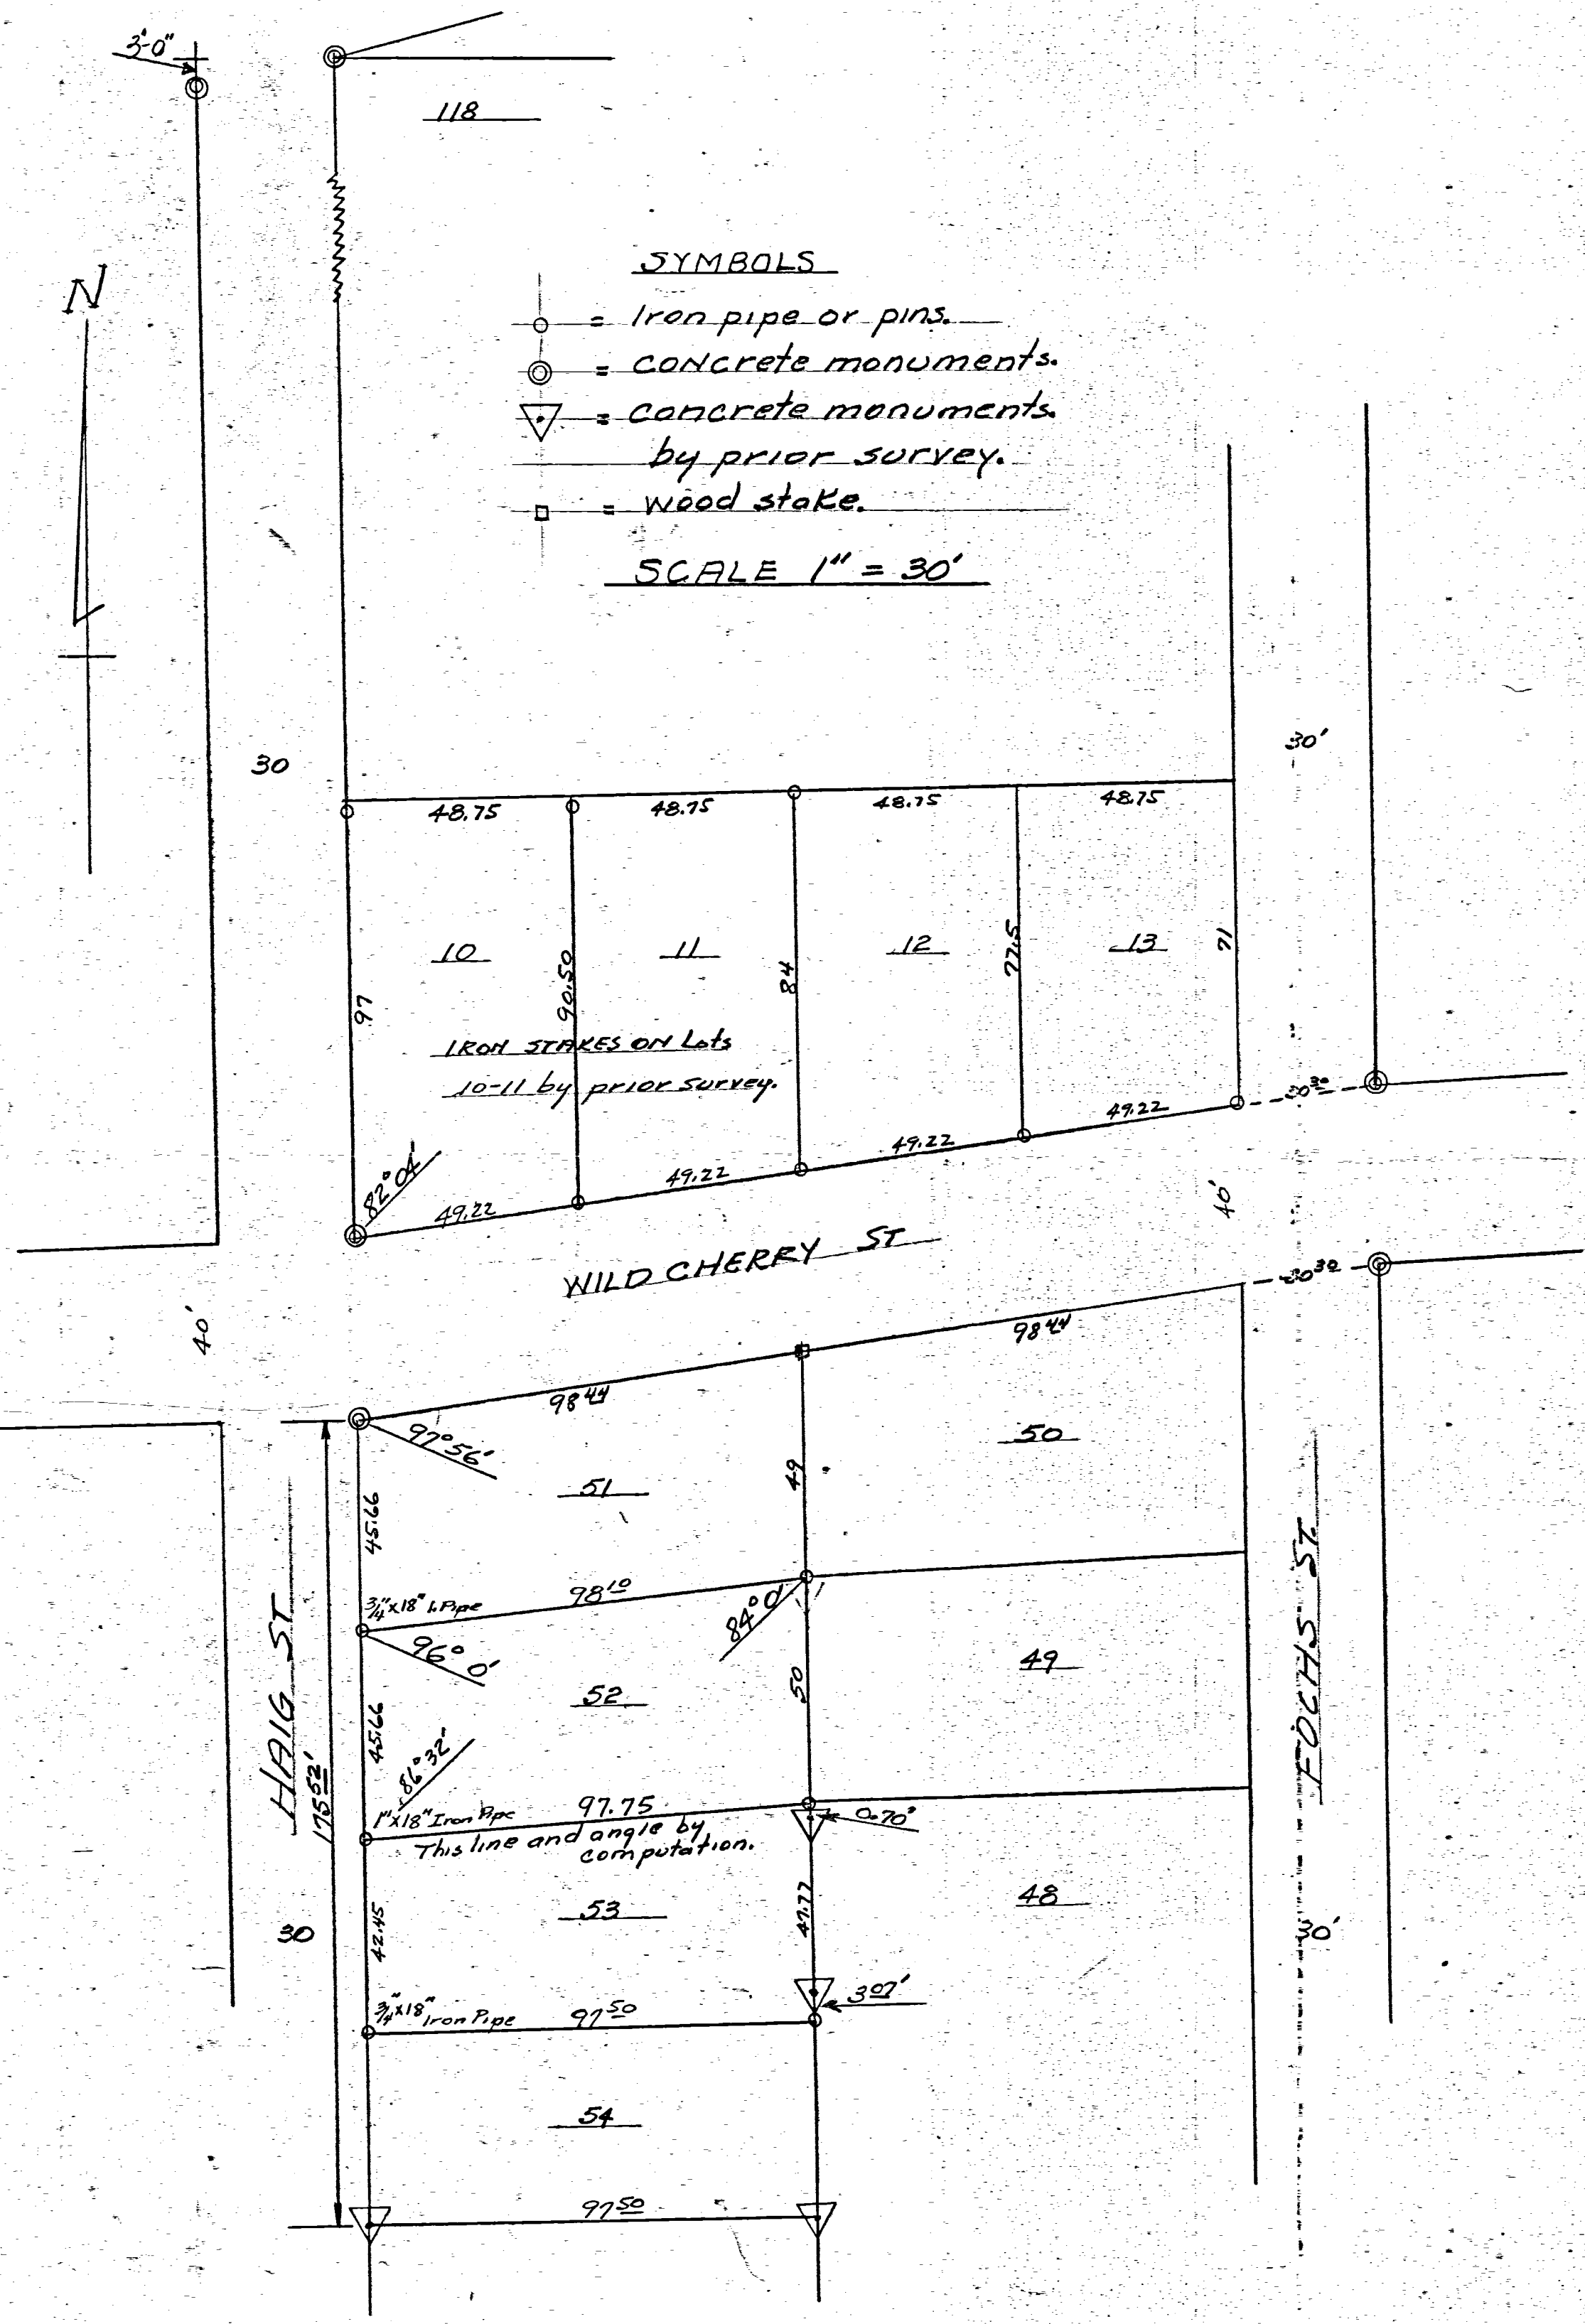 3'-0"
118
N
SYMBOLS
= Iron pipe or pins.
= CONCrete monuments.
= Concrete monuments.
by prior survey.
= Wood stake.
SCALE 1" = 30'
30
30'
48.75
48.75
48.75
48.75
10
11
12
13
97
90.50
84
77.5
71
IRON STAKES ON Lots
10-11 by prior survey.
82°04'
49.22
49.22
49.22
49.22
30 30
WILD CHERRY ST
40'
40'
30 30
98 44
98 44
97°56'
51
50
45.66
49
3/4"x18" I. Pipe
98 10
84°0'
96° 0'
52
49
50
45.66
HAIG ST
175 52'
FOCHS ST.
86°32"
1"x18" Iron Pipe
97.75
0.70'
This line and angle by
computation.
53
48
42.45
47.77
30
30'
3 07'
3/4"x18"
Iron Pipe
97 50
54
97 50